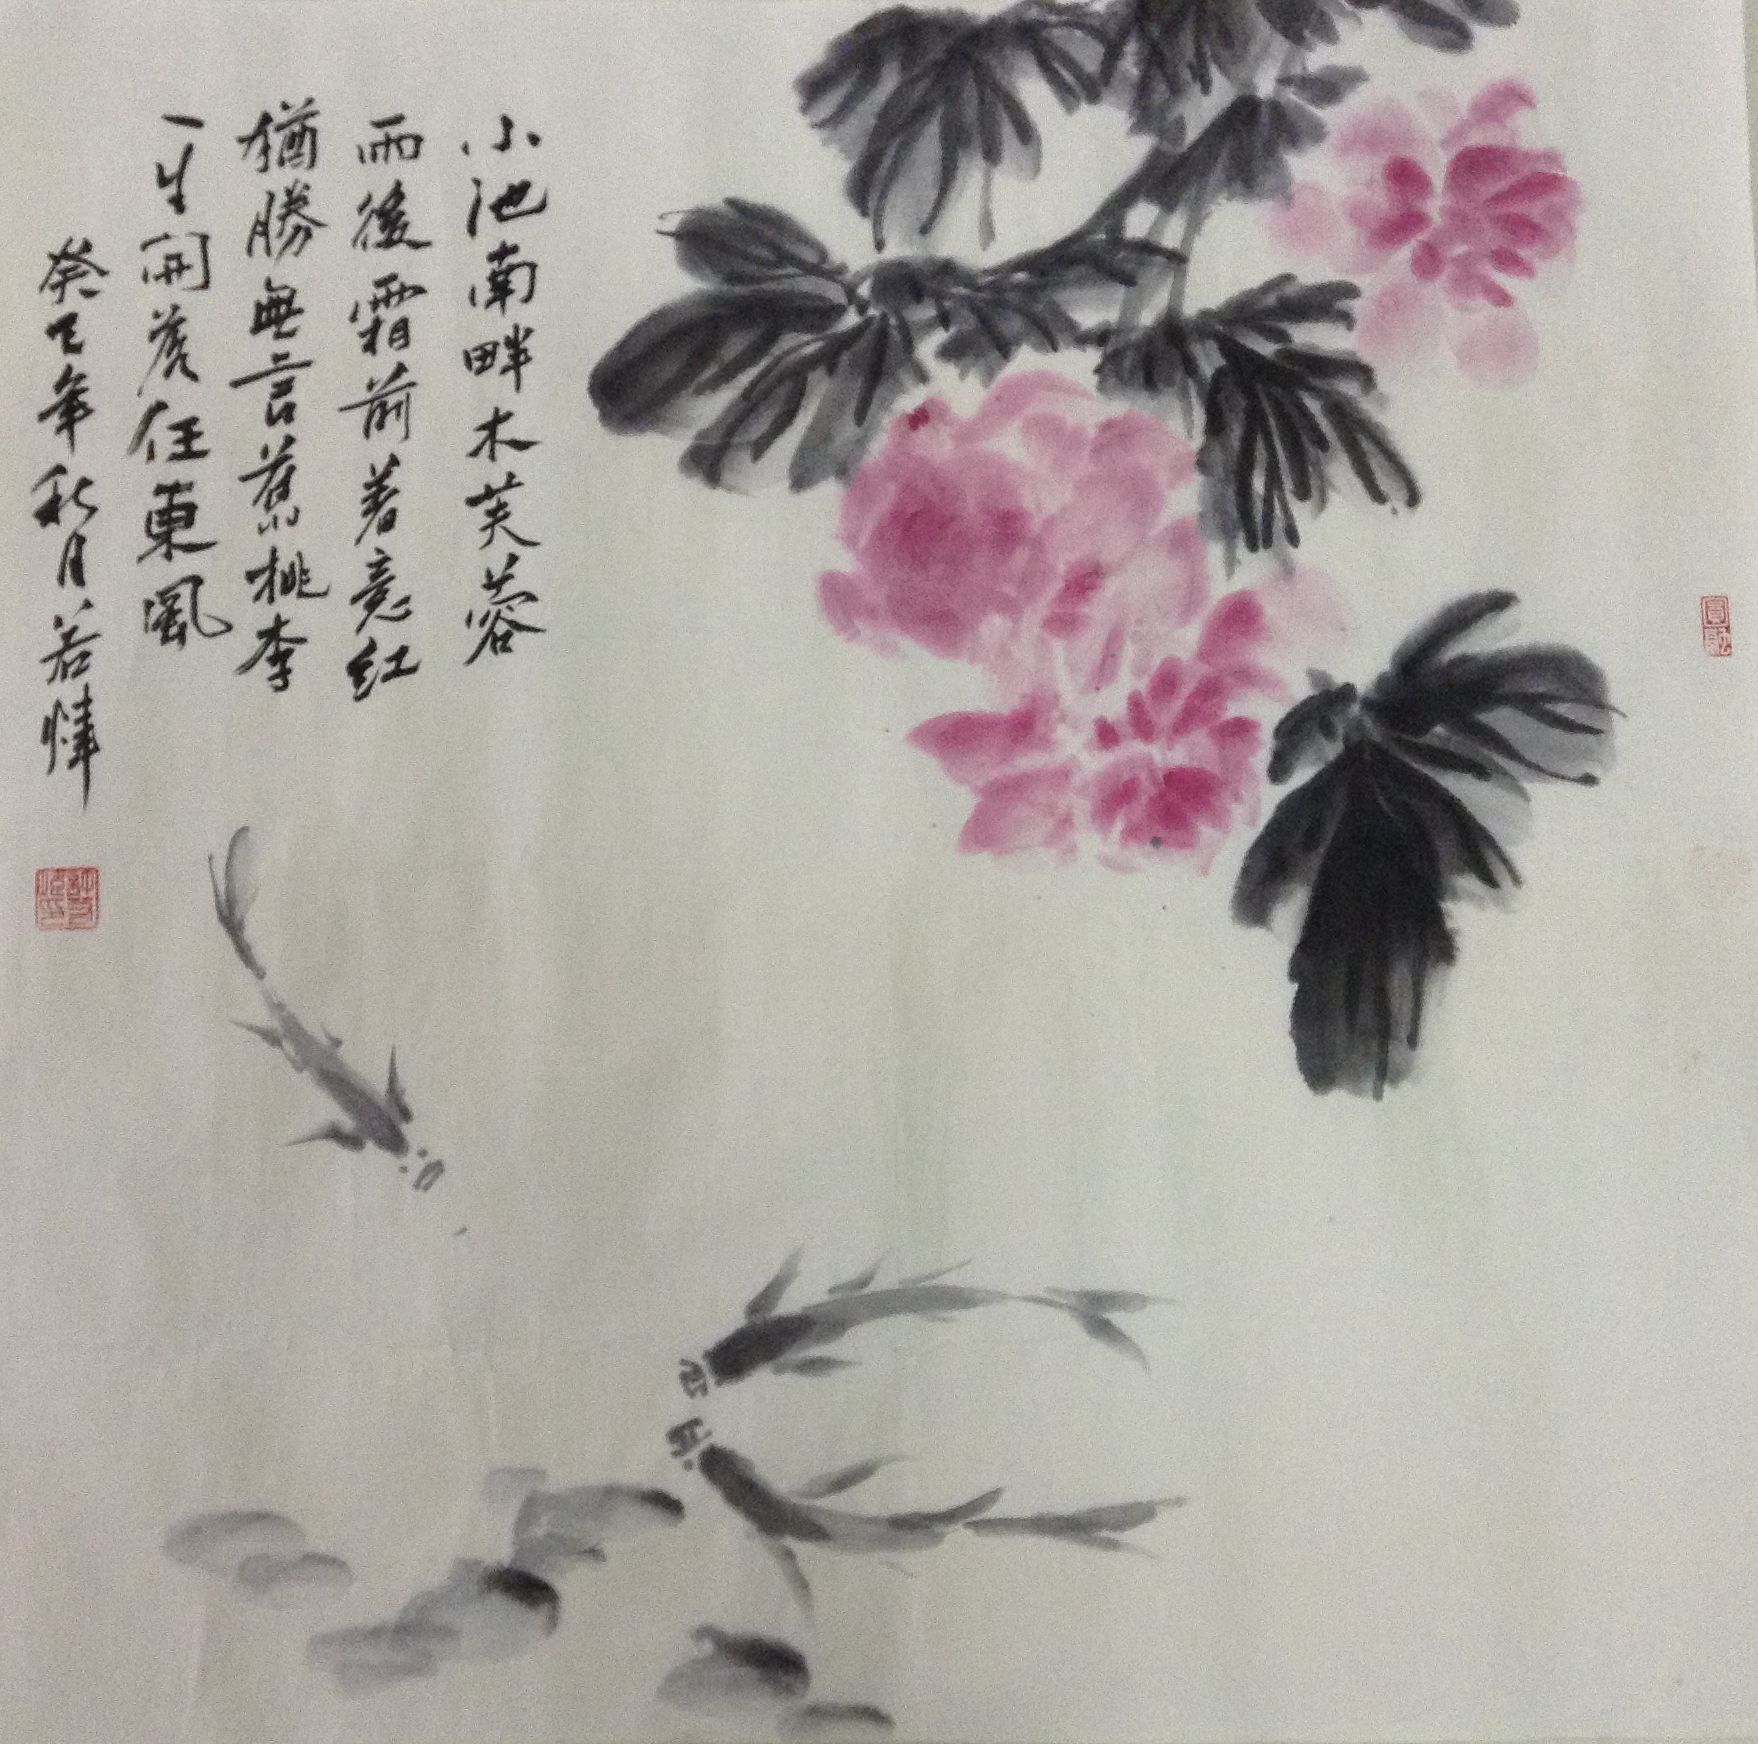 小池南畔木芙蓉
雨後霜前着意紅
猶勝無言舊桃李
一生開落任東風
癸巳年秋月若煒